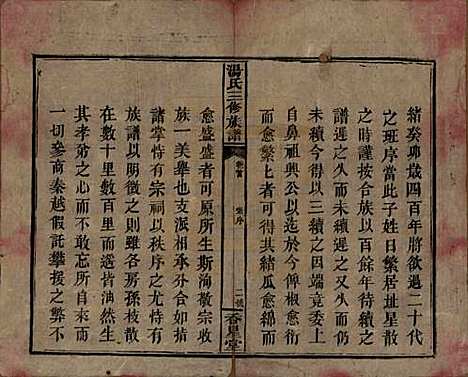 緒癸卯歲四百年將欲過二十代
之班序當此子姓日繁居址星散
之時謹按合族以百餘年待續之
譜遲之久而未續遲之又久而終
未續今得以三續之因端竟委上
自鼻祖興公以迄今俾椒愈衍
而愈繁上者可得其結瓜愈綿而
湯氏三修族譜
卷首
序
二
春星堂
愈盛盛者可原所生斯海敬宗收
族一美舉也支派相承分合如指
諸掌可特有宗祠以秩序之尤特
族譜以明徵之各房孫枝散
在數十里數百里而遙皆油然生
其孝弟之心而不敢忘所自來于
一切參商秦越假託攀援之弊不